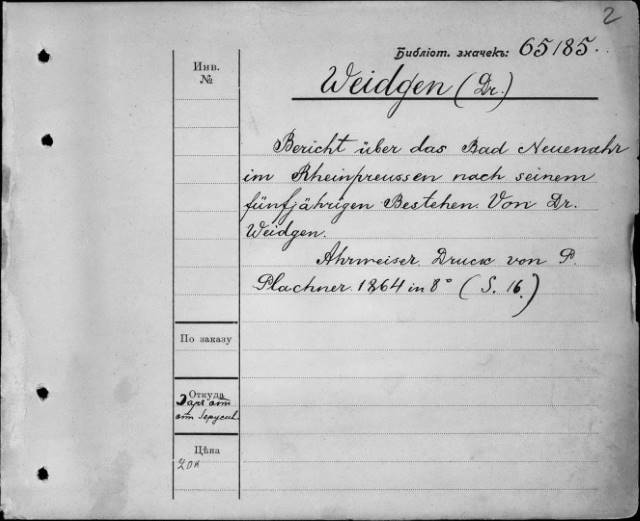 2
Библіот. значекъ: 65185.
Инв.
№
Weidgen (Dr.)
Bericht über das Bad Neuenahr
im Rheinpreussen nach seinem
fünfjährigen Bestehen. Von Dr.
Weidgen.
Ahrweiser. Druck von P.
Plachner. 1864 in 8° (S. 16.)
По заказу
Откуда
Даръ
от
Цѣна
20к